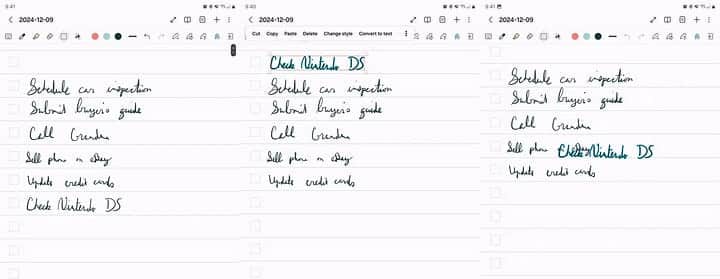 9:41
2024-12-09
Schedule car inspection
Submit buyer's guide
Call Grandma
Sell phone on eBay
Update credit cards
Check Nintendo DS
9:40
2024-12-09
Cut Copy Paste Delete Change style Convert to text
Check Nintendo DS
Schedule car inspection
Submit buyer's guide
Call Grandma
Sell phone on eBay
Update credit cards
9:41
2024-12-09
Schedule car inspection
Submit buyer's guide
Call Grandma
Sell phone Check Nintendo DS
Update credit cards